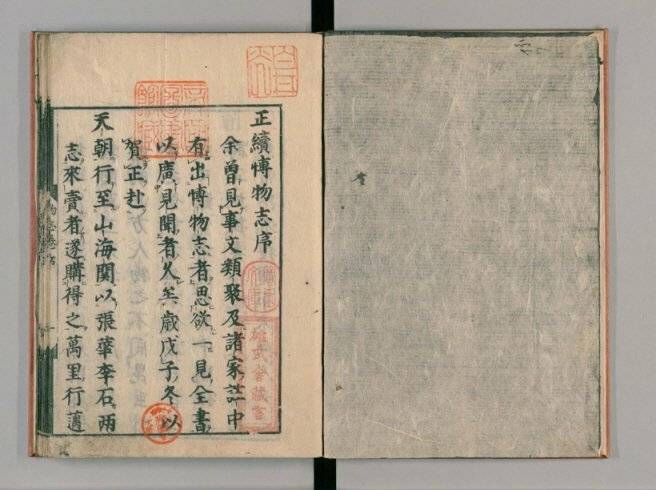 正續博物志序
余曾見事文類聚及諸家註中
有出博物志者思欲一見全書
以廣見聞者久矣歲戊子冬以
賀正赴
天朝行至山海関以張華李石兩
志來賣者遂購得之萬里行邁